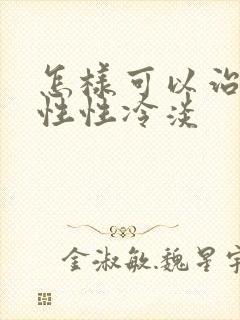 怎樣可以治
性性冷淡
金淑敏.魏星宇